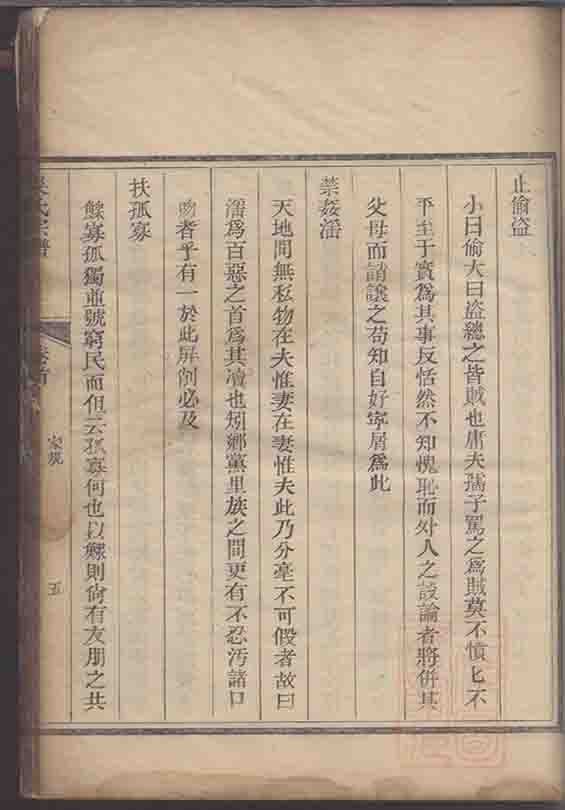 止偷盜
小曰偷大曰盜總之皆賊也庸夫孺子罵之爲賊莫不憤匕不
平至于實爲其事反恬然不知愧恥而外人之談論者將併其
父母而誚讓之苟知自好寧屑爲此
禁姦淫
天地間無私物在夫惟妻在妻惟夫此乃分毫不可假者故曰
淫爲百惡之首爲其瀆也矧鄉黨里族之間更有不忍汚諸口
吻者乎有一於此屏削必及
扶孤寡
鰥寡孤獨並號窮民而但云孤寡何也以鰥則尙有友朋之共
氏宗譜
卷首
家規
五